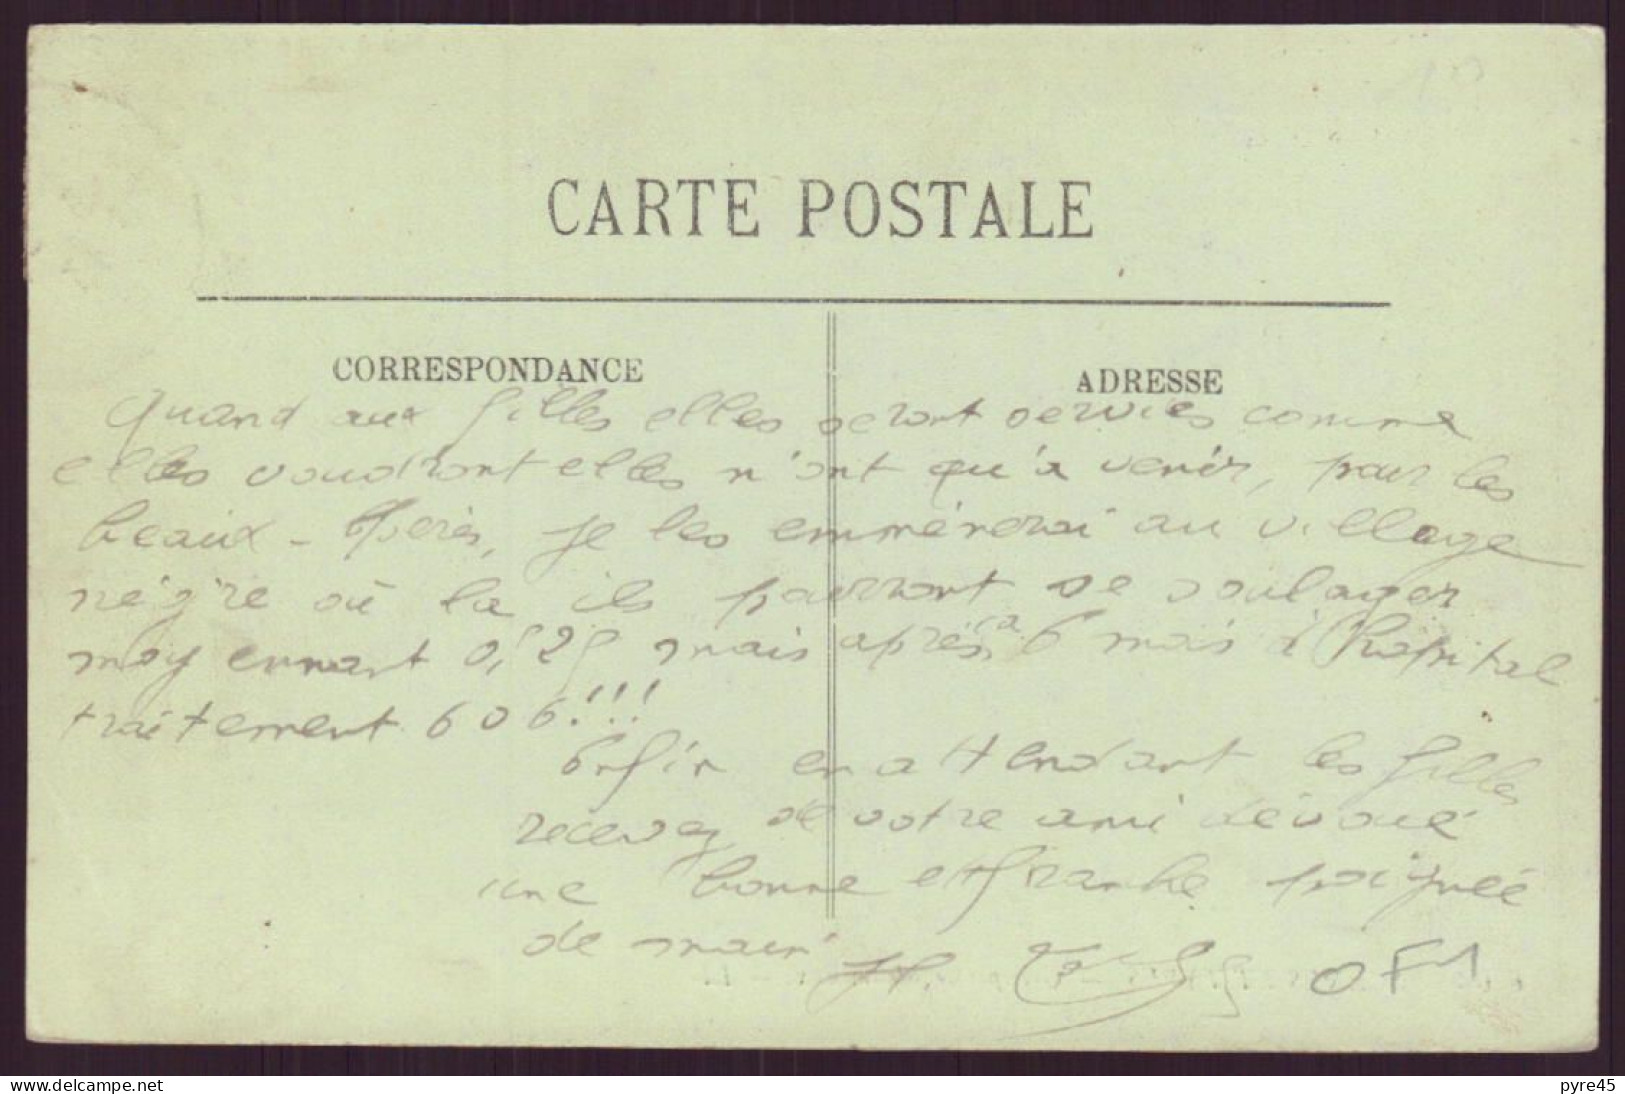 CARTE POSTALE
CORRESPONDANCE
ADRESSE
Quand aux filles elles seront servies comme
elles voudront elles n'ont qu'à venir, pour les
beaux-Pères, je les emmènerai au village
nègre où là ils pourront se soulager
moyennant 0,25 mais après ça 6 mois à l'hopital
traitement 606!!!
Enfin en attendant les filles
recevez de votre ami dévoué
une bonne et franche poignée
de main
OF1
pyre45